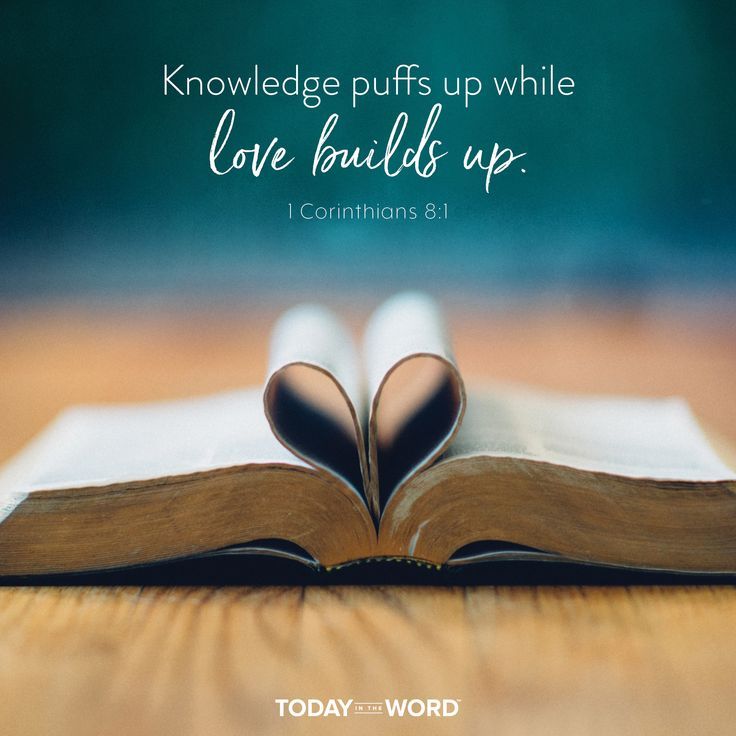 Knowledge puffs up while
love builds up.
1 Corinthians 8:1
TODAY IN THE WORD™